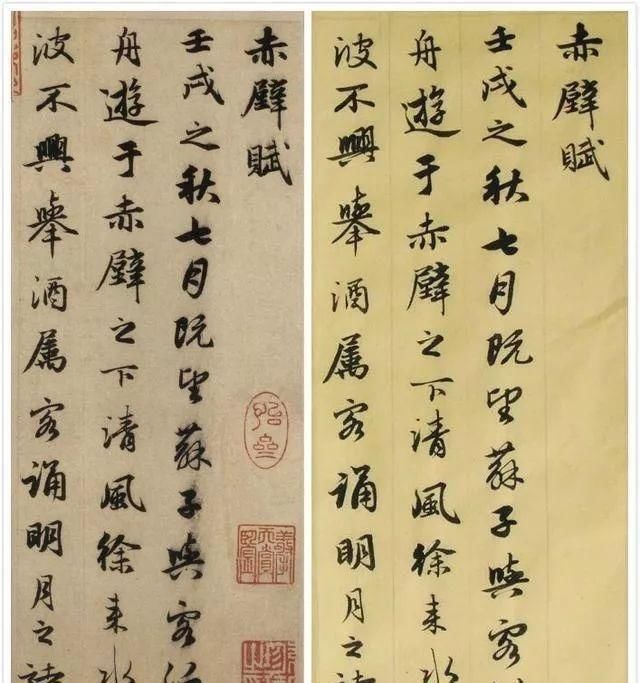 赤壁賦
壬戌之秋七月既望蘇子與客
舟遊于赤壁之下清風徐来水
波不興舉酒属客誦明月之
赤壁賦
壬戌之秋七月既望蘇子與客
舟遊于赤壁之下清風徐来水
波不興舉酒属客誦明月之